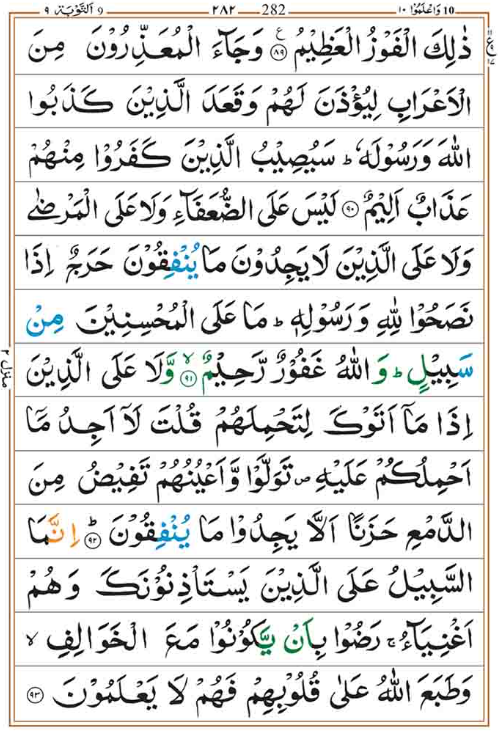 التوبة ٩ 9 ٢٨٢ 282 واعلموا ١٠ 10
ذٰلِكَ الْفَوْزُ الْعَظِيْمُ ۝٨٩ ع وَجَآءَ الْمُعَذِّرُوْنَ مِنَ
الْاَعْرَابِ لِيُؤْذَنَ لَهُمْ وَقَعَدَ الَّذِيْنَ كَذَبُوا
اللّٰهَ وَرَسُوْلَهٗ ؕ سَيُصِيْبُ الَّذِيْنَ كَفَرُوْا مِنْهُمْ
عَذَابٌ اَلِيْمٌ ۝٩٠ لَيْسَ عَلَى الضُّعَفَآءِ وَلَا عَلَى الْمَرْضٰى
وَلَا عَلَى الَّذِيْنَ لَا يَجِدُوْنَ مَا يُنْفِقُوْنَ حَرَجٌ اِذَا
نَصَحُوْا لِلّٰهِ وَرَسُوْلِهٖ ؕ مَا عَلَى الْمُحْسِنِيْنَ مِنْ
سَبِيْلٍ ؕ وَاللّٰهُ غَفُوْرٌ رَّحِيْمٌ ۝٩١ ۙ وَّلَا عَلَى الَّذِيْنَ
اِذَا مَآ اَتَوْكَ لِتَحْمِلَهُمْ قُلْتَ لَآ اَجِدُ مَآ
اَحْمِلُكُمْ عَلَيْهِ ۪ تَوَلَّوْا وَّاَعْيُنُهُمْ تَفِيْضُ مِنَ
الدَّمْعِ حَزَنًا اَلَّا يَجِدُوْا مَا يُنْفِقُوْنَ ۝٩٢ ؕ اِنَّمَا
السَّبِيْلُ عَلَى الَّذِيْنَ يَسْتَاْذِنُوْنَكَ وَهُمْ
اَغْنِيَآءُ ۚ رَضُوْا بِاَنْ يَّكُوْنُوْا مَعَ الْخَوَالِفِ ۙ
وَطَبَعَ اللّٰهُ عَلٰى قُلُوْبِهِمْ فَهُمْ لَا يَعْلَمُوْنَ ۝٩٣
منزل ٢